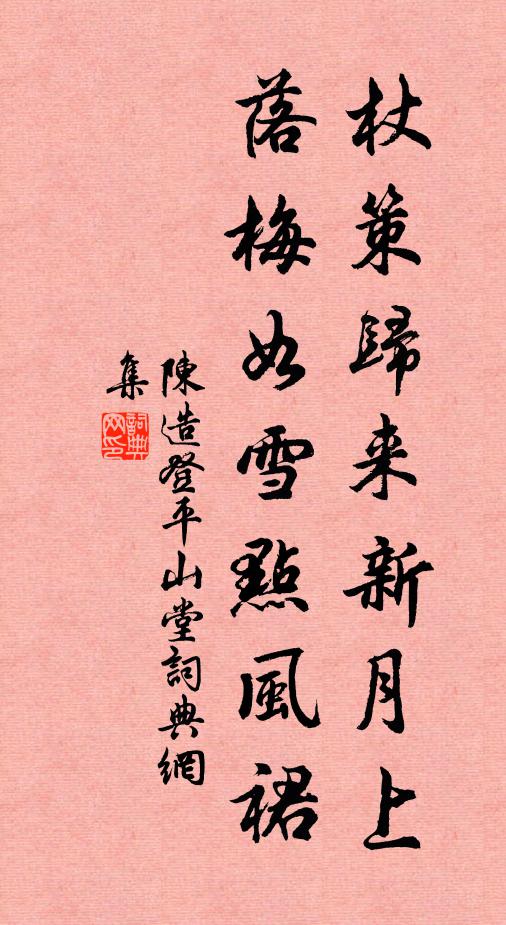 杖策歸来新月上
落梅如雪點風裙
陳造登平山堂詞典網
集
詞典
网印